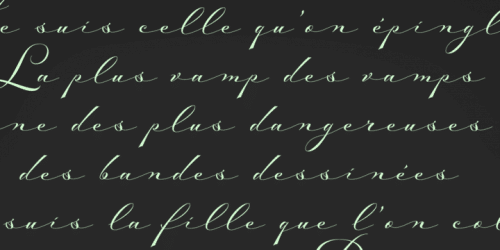 suis celle qu'on épingl
La plus vamp des vamps
ne des plus dangereuses
des bandes dessinées
suis la fille que l'on co